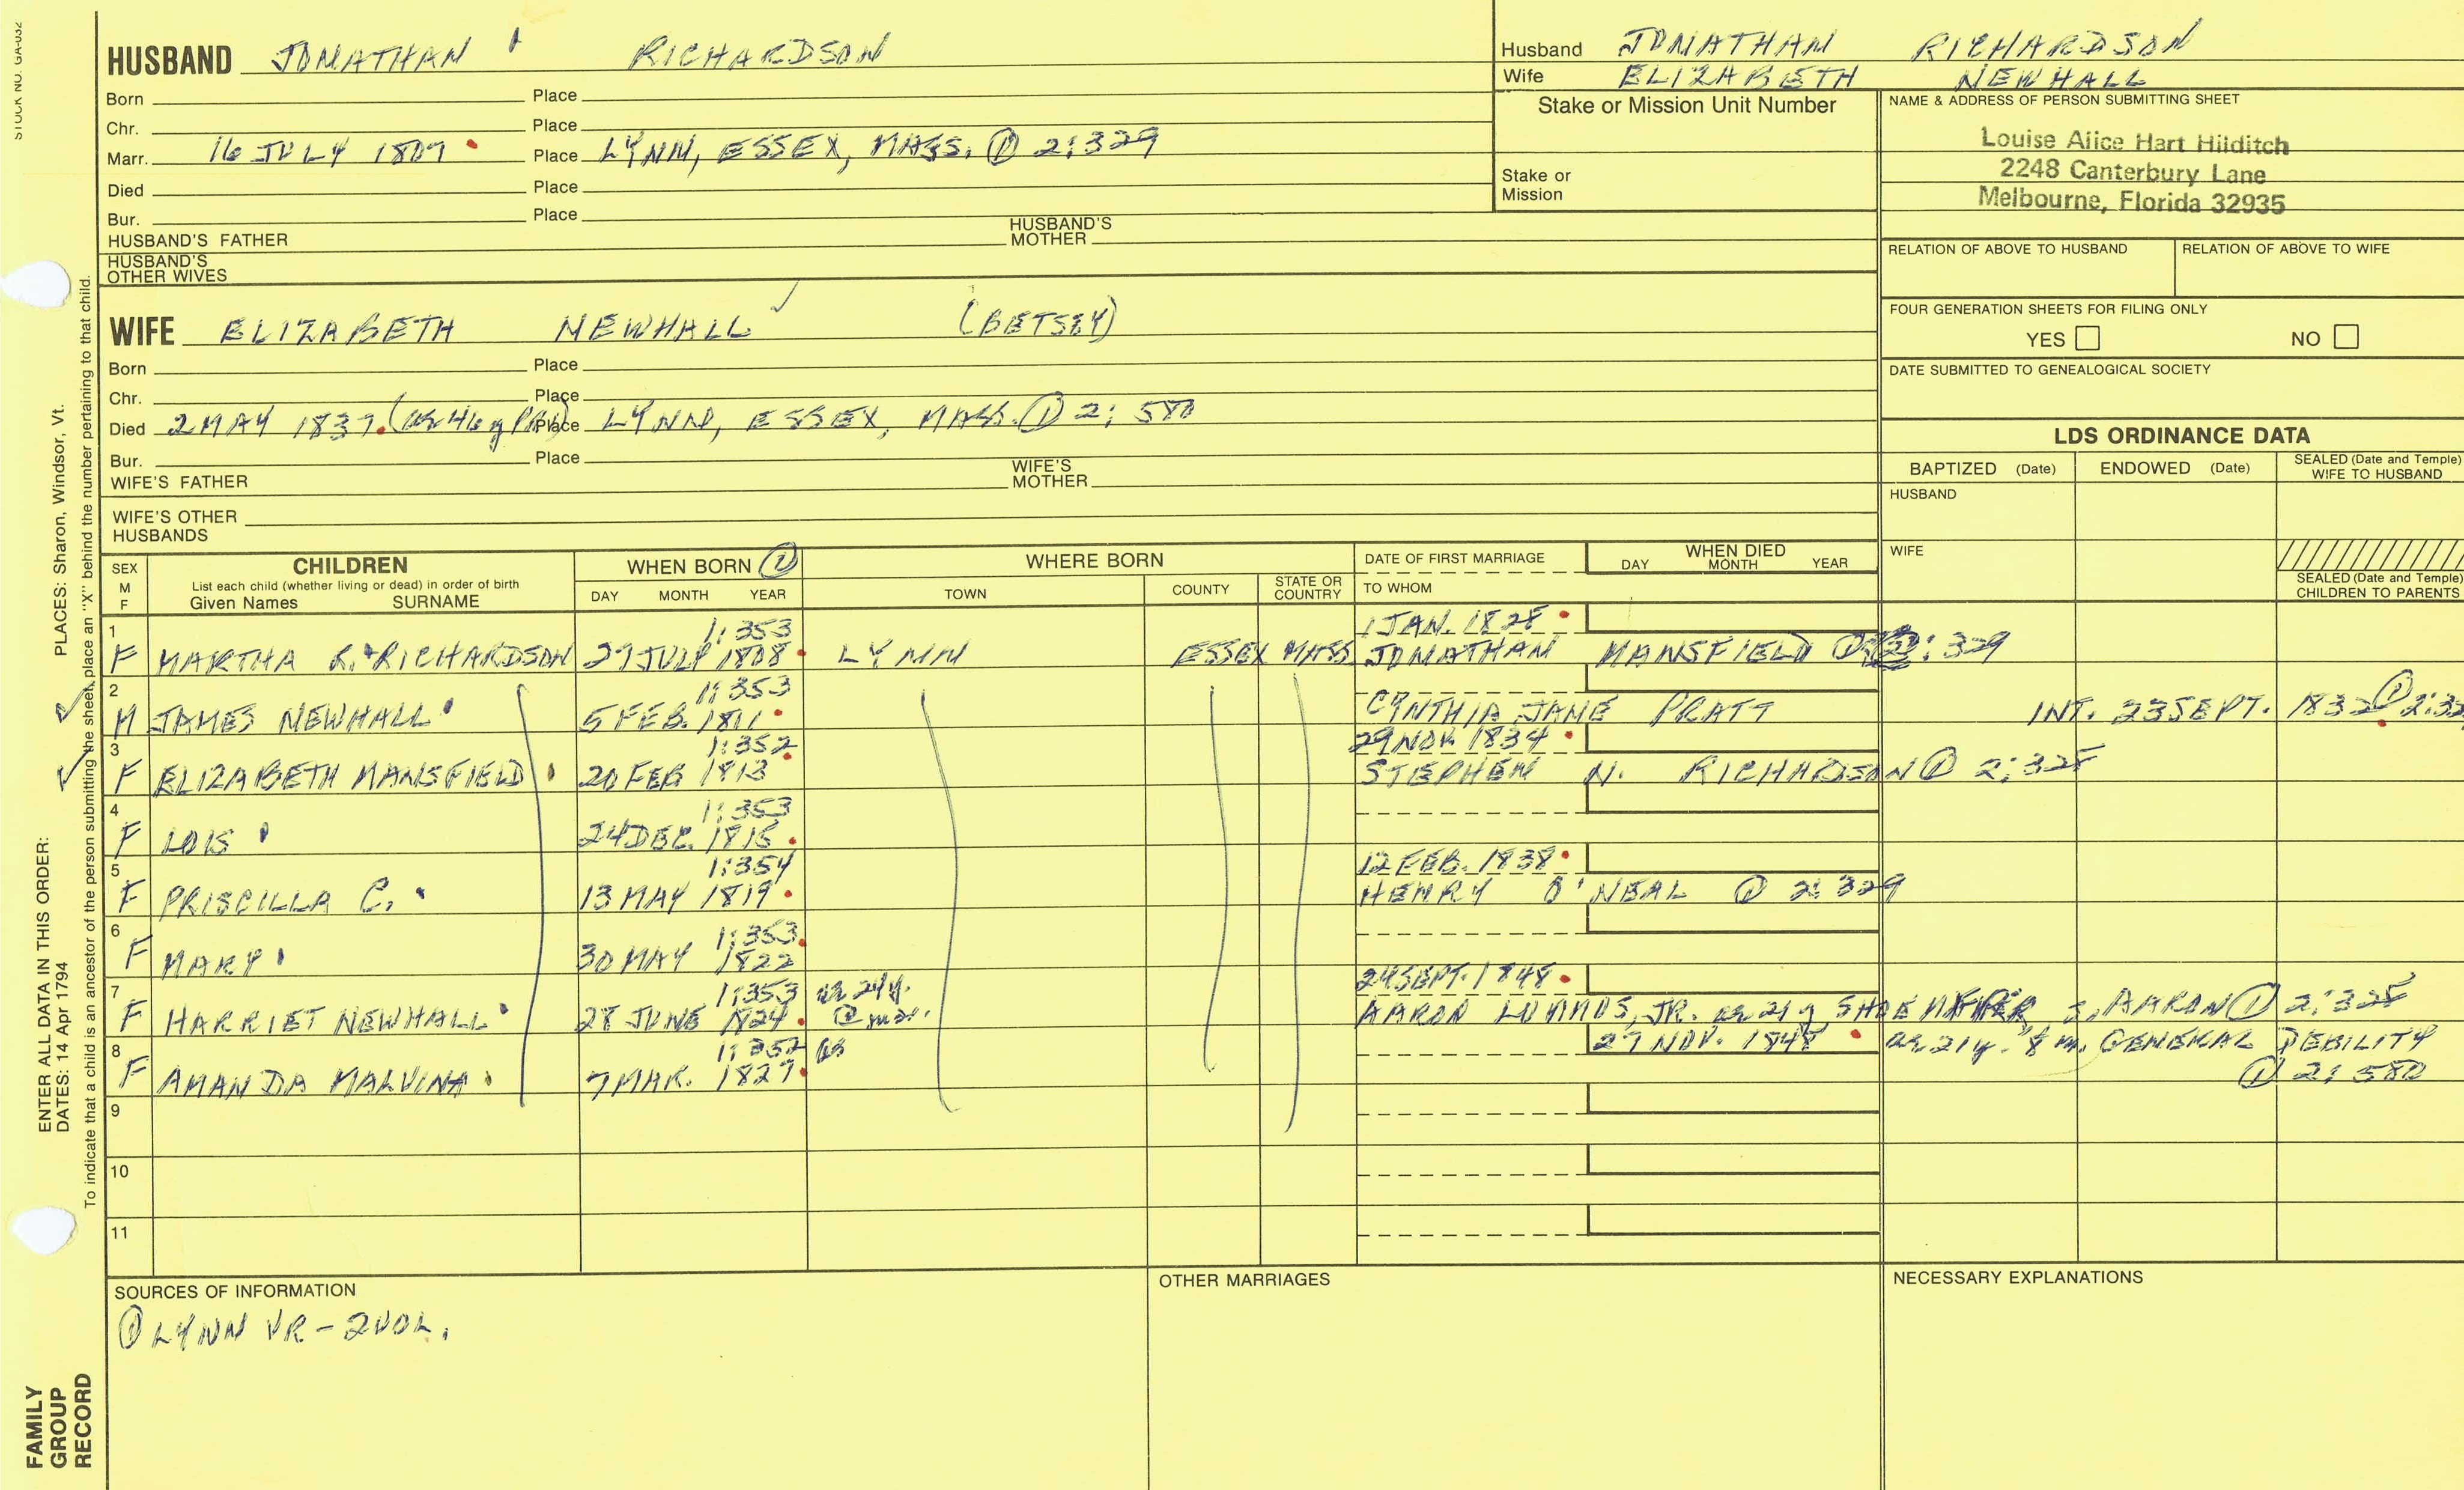 STOCK NO. GA-032
HUSBAND JONATHAN RICHARDSON
Born Place
Chr. Place
Marr. 16 JULY 1807 Place LYNN, ESSEX, MASS. ① 2:329
Died Place
Bur. Place
HUSBAND'S FATHER HUSBAND'S MOTHER
HUSBAND'S OTHER WIVES
Husband JONATHAN RICHARDSON
Wife ELIZABETH NEWHALL
Stake or Mission Unit Number
Stake or Mission
NAME & ADDRESS OF PERSON SUBMITTING SHEET
Louise Alice Hart Hilditch
2248 Canterbury Lane
Melbourne, Florida 32935
RELATION OF ABOVE TO HUSBAND RELATION OF ABOVE TO WIFE
FOUR GENERATION SHEETS FOR FILING ONLY
YES NO
DATE SUBMITTED TO GENEALOGICAL SOCIETY
WIFE ELIZABETH NEWHALL (BETSEY)
Born Place
Chr. Place
Died 2 MAY 1837. (ae 46 y Place LYNN, ESSEX, MASS. ① 2: 580
Bur. Place
WIFE'S FATHER WIFE'S MOTHER
WIFE'S OTHER HUSBANDS
LDS ORDINANCE DATA
BAPTIZED (Date) ENDOWED (Date) SEALED (Date and Temple) WIFE TO HUSBAND
HUSBAND
WIFE
SEALED (Date and Temple) CHILDREN TO PARENTS
SEX M F
CHILDREN
List each child (whether living or dead) in order of birth
Given Names SURNAME
WHEN BORN ①
DAY MONTH YEAR
WHERE BORN
TOWN COUNTY STATE OR COUNTRY
DATE OF FIRST MARRIAGE
TO WHOM
WHEN DIED
DAY MONTH YEAR
1 1:353 1 JAN. 1828
F MARTHA R. RICHARDSON 27 JULY 1808 LYNN ESSEX MASS JONATHAN MANSFIELD ① 2:329
2 1:353
M JAMES NEWHALL 5 FEB. 1811 CYNTHIA JANE PRATT INT. 23 SEPT. 1832 ① 2:32
3 1:352 29 NOV. 1834
F ELIZABETH MANSFIELD 20 FEB 1813 STEPHEN N. RICHARDSON ① 2:328
4 1:353
F LOIS 24 DEC. 1815
5 1:354 12 FEB. 1838
F PRISCILLA C. 13 MAY 1819 HENRY O'NEAL ① 2:329
6 1:353
F MARY 30 MAY 1822
7 1:353 ae 24y. 24 SEPT. 1848
F HARRIET NEWHALL 28 JUNE 1824 @ mar. AARON LUMMUS, JR. ae 21 y SHOEMAKER s. AARON ① 2:328
8 1:352 27 NOV. 1848 ae 21y. 8 m. GENERAL DEBILITY
F AMANDA MALVINA 7 MAR. 1827 ① 2: 580
9
10
11
SOURCES OF INFORMATION
① LYNN VR - 2 VOL.
OTHER MARRIAGES
NECESSARY EXPLANATIONS
ENTER ALL DATA IN THIS ORDER:
DATES: 14 Apr 1794 PLACES: Sharon, Windsor, Vt.
To indicate that a child is an ancestor of the person submitting the sheet, place an "X" behind the number pertaining to that child.
FAMILY
GROUP
RECORD